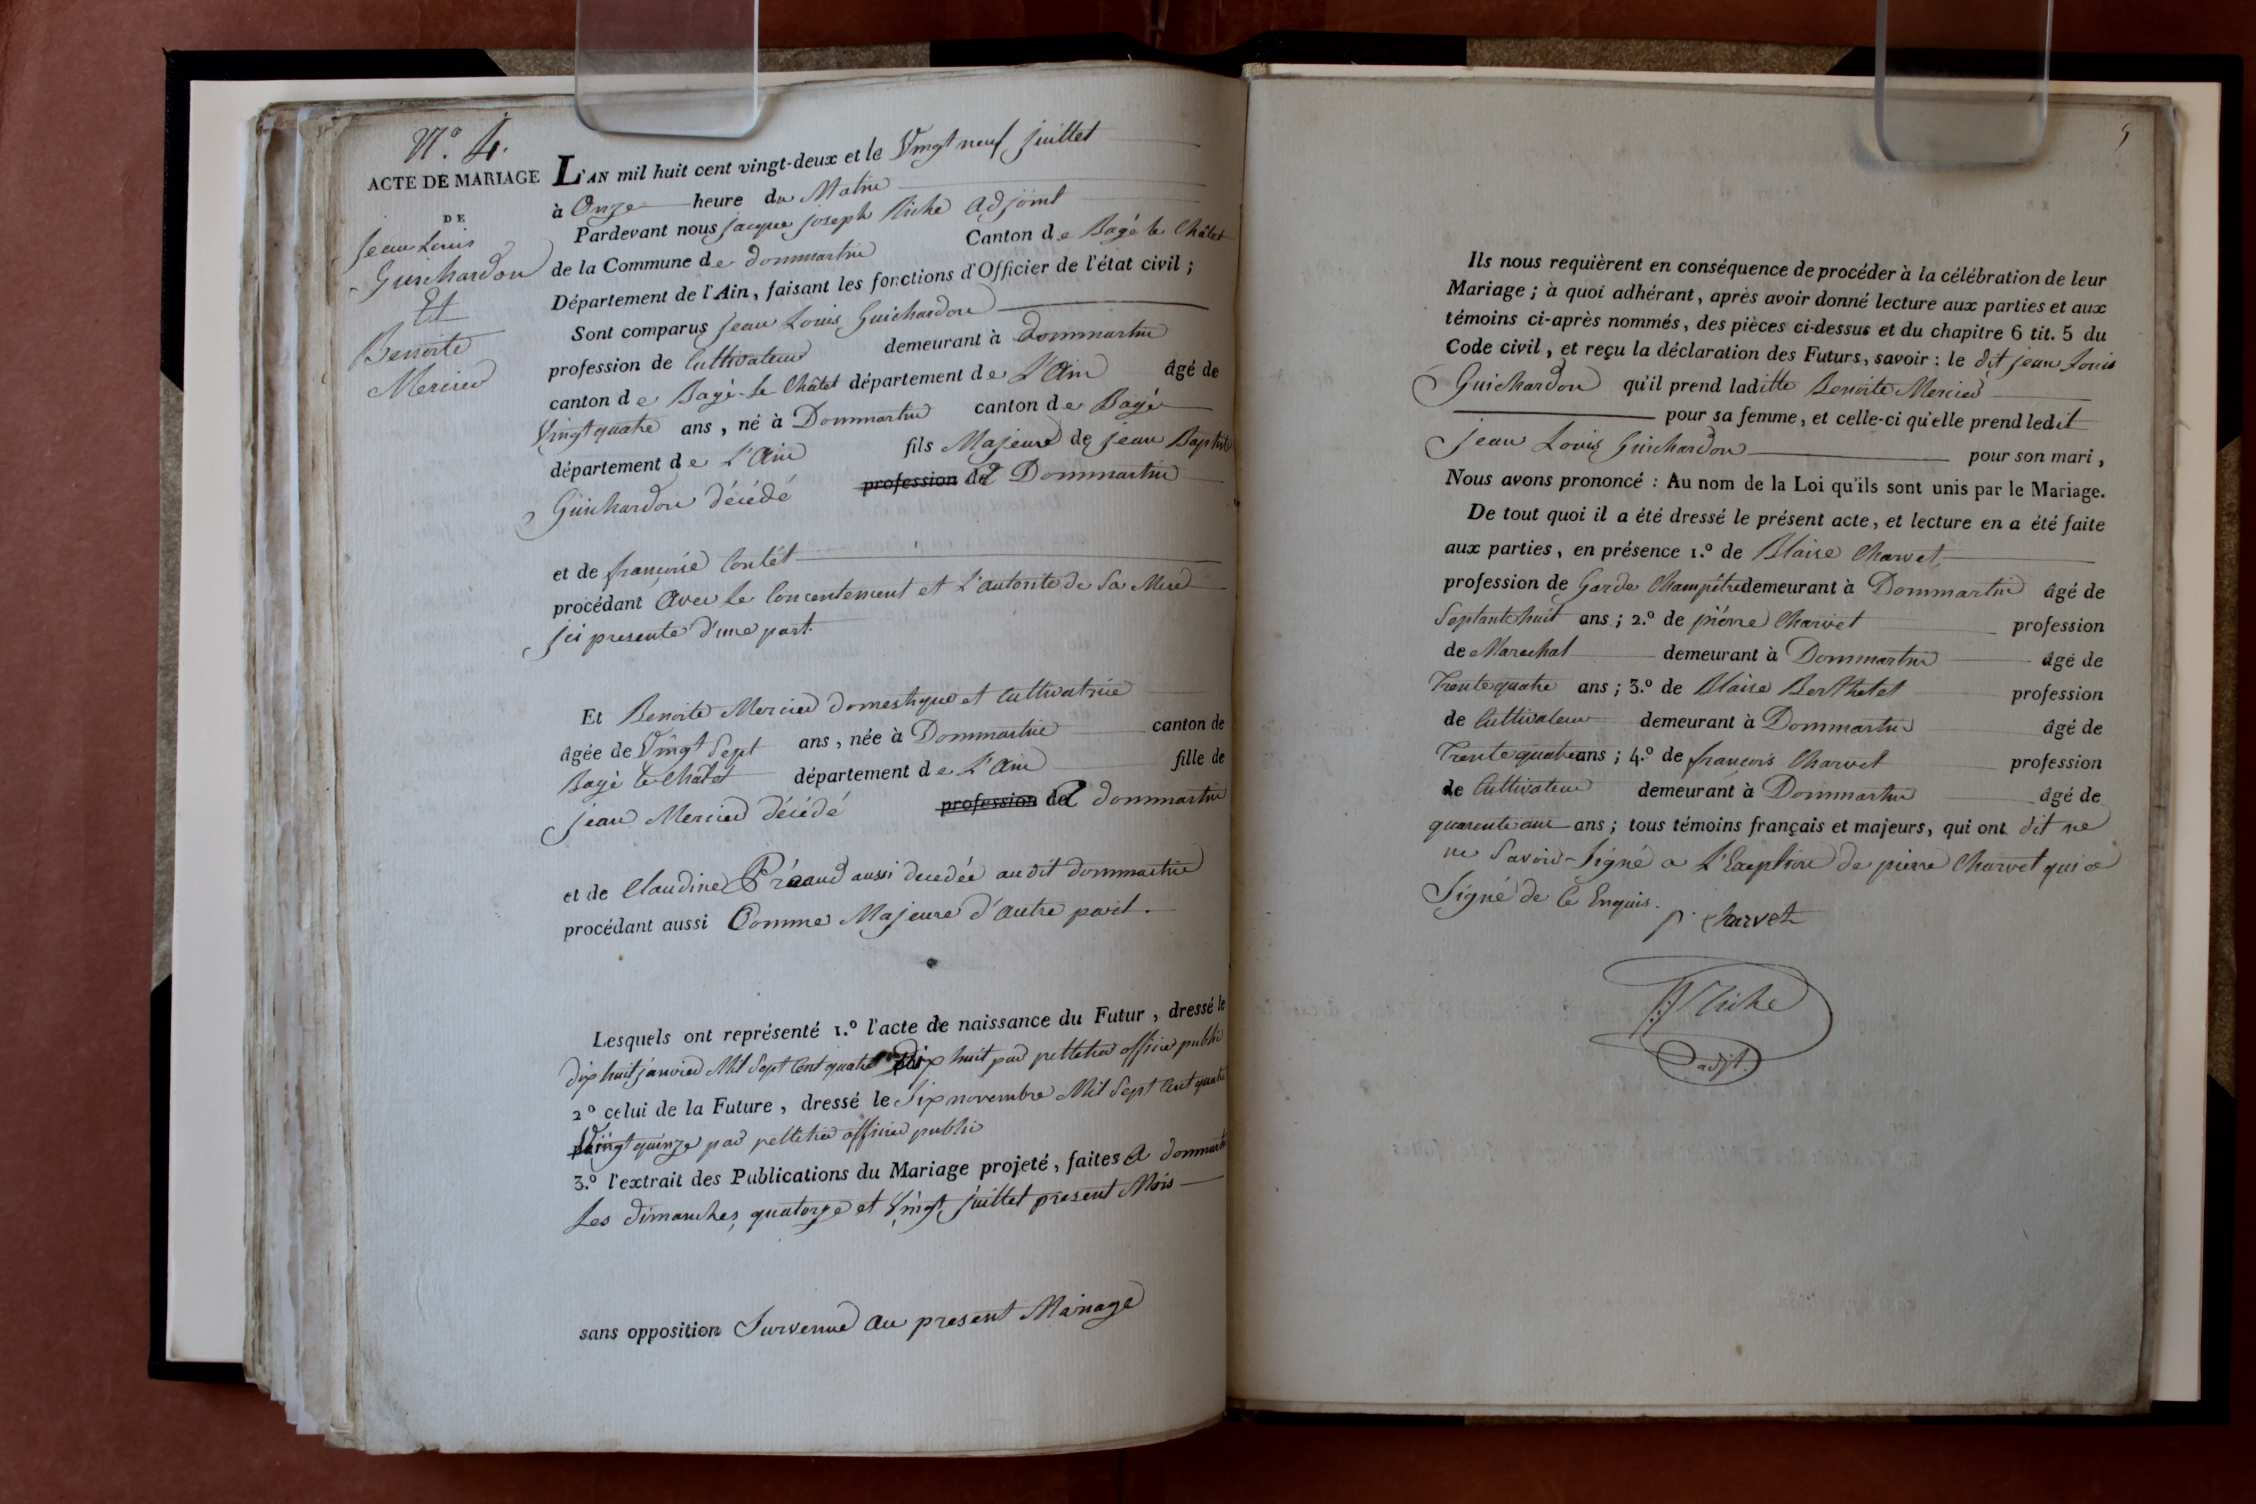 N.º 4.
ACTE DE MARIAGE
DE
Jean Louis
Guichardon
Et
Benoite
Mercier
L'AN mil huit cent vingt-deux et le Vingt neuf juillet
à Onze heure du Matin
Pardevant nous jacque joseph Riche Adjoint
de la Commune de dommartin Canton de Bagé le Châtel
Département de l'Ain, faisant les fonctions d'Officier de l'état civil ;
Sont comparus jean Louis Guichardon
profession de Cultivateur demeurant à Dommartin
canton de Bagé-le Châtel département de L'Ain âgé de
Vingt quatre ans, né à Dommartin canton de Bagé
département de L'Ain fils Majeur de jean Baptiste
Guichardon décédé profession de a Dommartin
et de françoise Contét
procédant Avec Le Concentement et L'autorité de Sa Mere
jci presente d'une part.
Et Benoite Mercier domestique et cultivatrice
âgée de Vingt Sept ans, née à Dommartin canton de
Bagé le Châtel département de L'Ain fille de
jean Mercier décédé profession de a dommartin
et de Claudine aussi decedée audit dommartin
procédant aussi Comme Majeure d'autre part.
Lesquels ont représenté 1.º l'acte de naissance du Futur, dressé le
dix huit janvier Mil Sept Cent quatre dix huit par pelletier officier public
2º celui de la Future, dressé le Six novembre Mil Sept Cent quatre
Vingt quinze par pelletier officier public
3.º l'extrait des Publications du Mariage projeté, faites A dommartin
Les dimanches quatorze et Vingt juillet present Mois
sans opposition Survenue au present Mariage
5
Ils nous requièrent en conséquence de procéder à la célébration de leur
Mariage ; à quoi adhérant, après avoir donné lecture aux parties et aux
témoins ci-après nommés, des pièces ci-dessus et du chapitre 6 tit. 5 du
Code civil, et reçu la déclaration des Futurs, savoir : le dit jean Louis
Guichardon qu'il prend laditte Benoite Mercier
pour sa femme, et celle-ci qu'elle prend ledit
jean Louis Guichardon pour son mari,
Nous avons prononcé : Au nom de la Loi qu'ils sont unis par le Mariage.
De tout quoi il a été dressé le présent acte, et lecture en a été faite
aux parties, en présence 1.º de Blaise Charvet
profession de Garde Champêtre demeurant à Dommartin âgé de
Septante huit ans ; 2.º de piérre Charvet profession
de Marechal demeurant à Dommartin âgé de
Trente quatre ans ; 3.º de Blaise Berthelet profession
de Cultivateur demeurant à Dommartin âgé de
Trente quatre ans ; 4.º de françois Charvet profession
de Cultivateur demeurant à Dommartin âgé de
quarente ans ; tous témoins français et majeurs, qui ont dit ne
ne Savoir Signé a L'Exeption de pierre Charvet qui a
Signé de Ce Enquis.
p. Charvet
Riche
adjt.